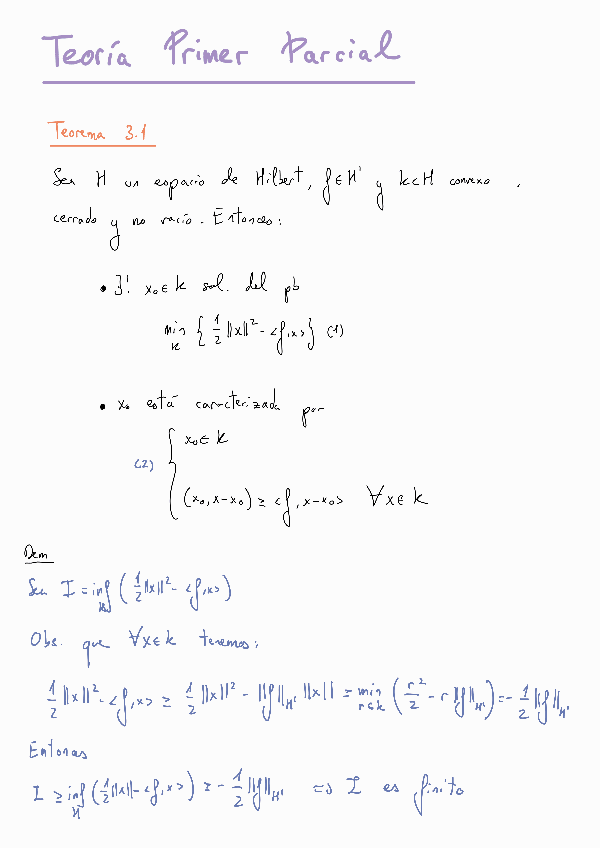 Teoría Primer Parcial
Teorema 3.1
Sea H un espacio de Hilbert, f∈H' y k⊂H convexo,
cerrado y no vacío. Entonces:
• ∃! x₀∈k sol. del pb
min {1/2 ||x||² - <f,x>} (1)
K
• x₀ está caracterizada por
x₀∈k
(2)
(x₀, x-x₀) ≥ <f, x-x₀> ∀x∈k
Dem
Sea I = inf (1/2||x||² - <f,x>)
Obs. que ∀x∈k tenemos:
1/2 ||x||² - <f,x> ≥ 1/2 ||x||² - ||f||H' ||x|| ≥ min (r²/2 - r||f||H') = - 1/2 ||f||H'
r∈k
Entonces
I ≥ inf (1/2||x|| - <f,x>) ≥ - 1/2 ||f||H' => I es finito
H